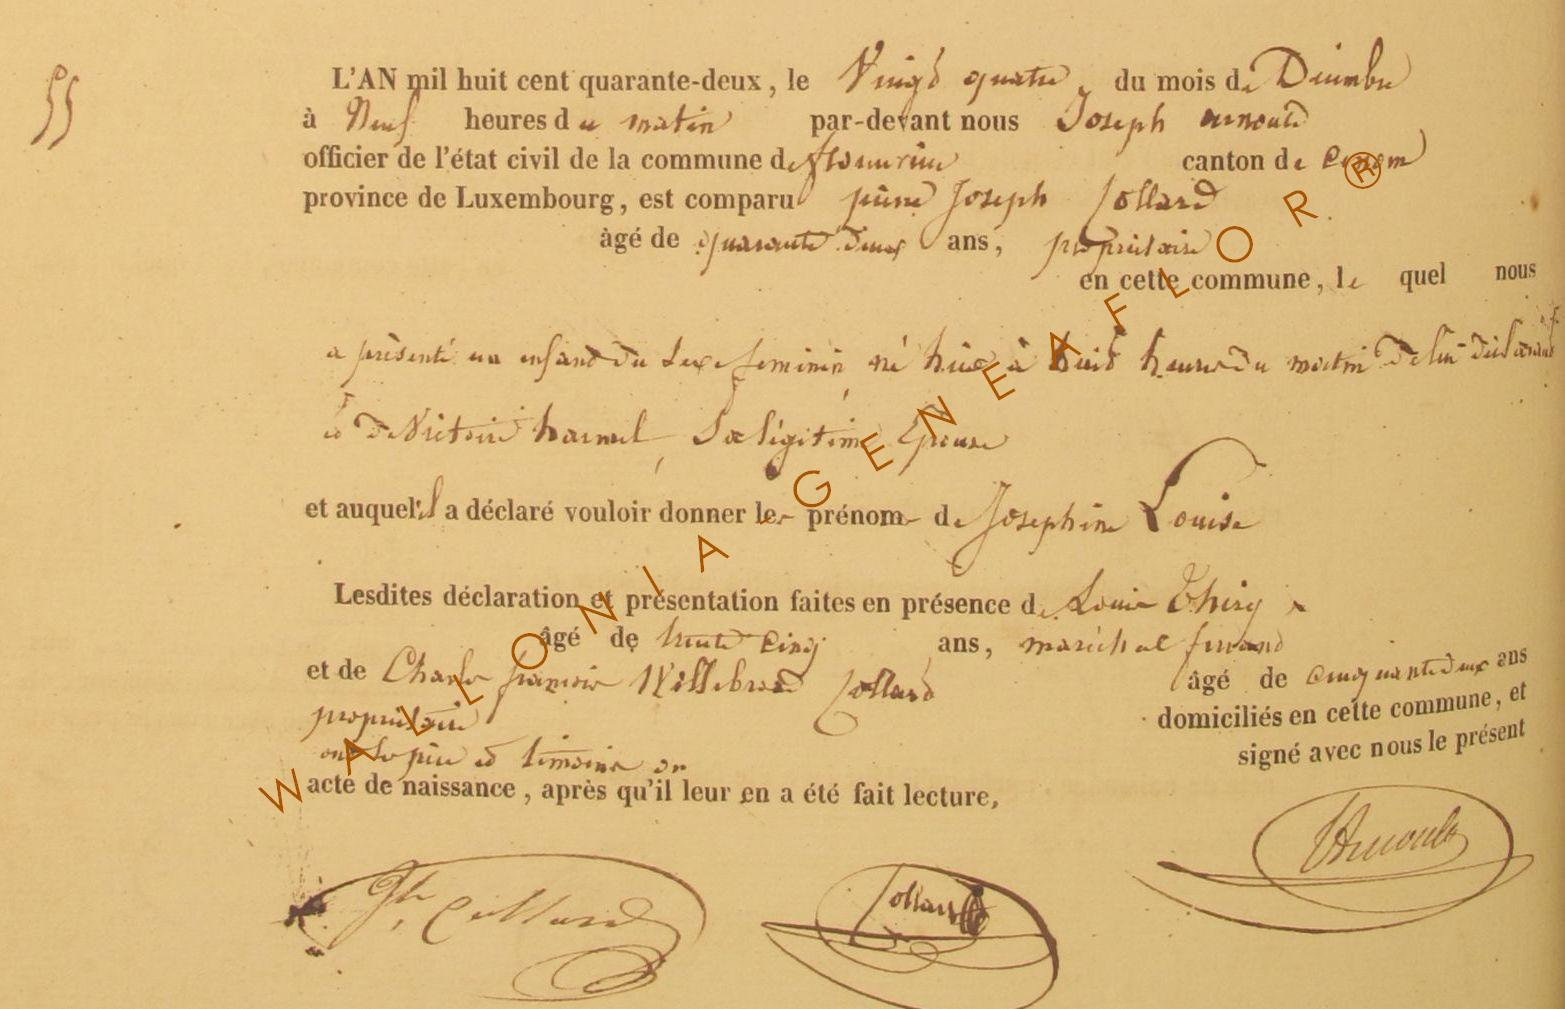 55
L'AN mil huit cent quarante-deux, le Vingt quatre du mois de Décembre
à Neuf heures du matin par-devant nous Joseph arnould
officier de l'état civil de la commune de canton de
province de Luxembourg, est comparu pierre Joseph Collard
âgé de quarante deux ans, propriétaire
en cette commune, le quel nous
a présenté un enfant du Sexe feminin né hier à huit heures du matin de lui déclarant
et de Victoire hamel, Sa légitime Epouse
et auquel il a déclaré vouloir donner les prénoms de Josephine Louise
Lesdites déclaration et présentation faites en présence de Louis Thiry
âgé de trente cinq ans, maréchal ferrand
et de Charles françois Willebrod Collard âgé de cinquante deux ans
propriétaire domiciliés en cette commune, et
ont le père et témoins on signé avec nous le présent
acte de naissance, après qu'il leur en a été fait lecture,
Jh Collard
Collard
JArnould
WALLONIA GENEAFLOR®